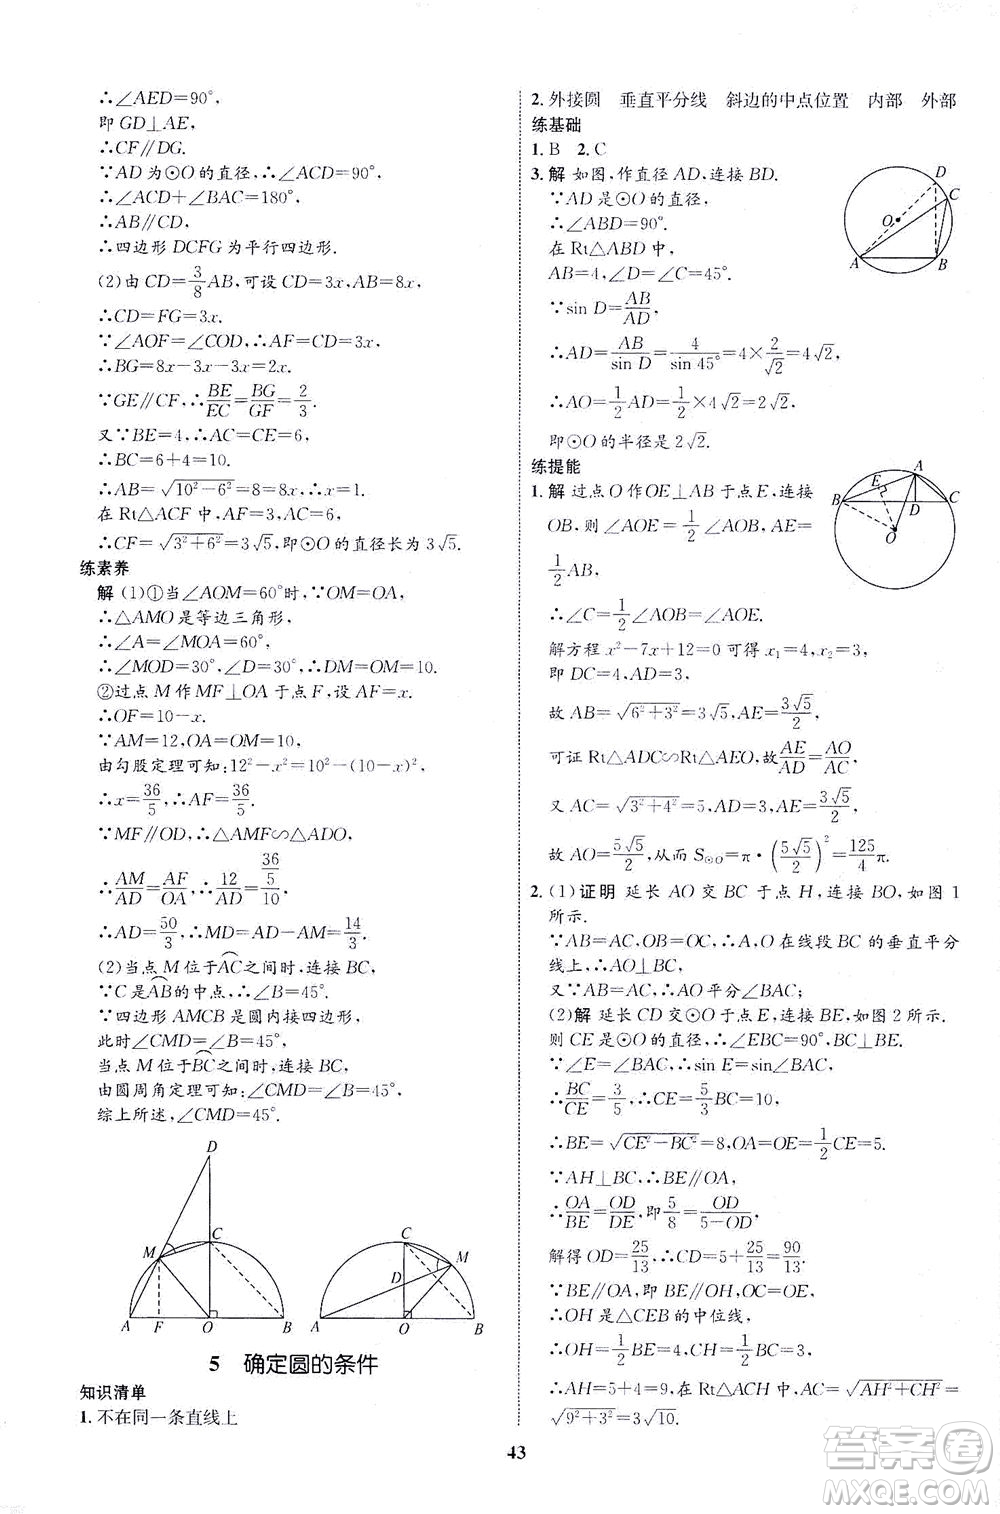 ∴∠AED=90°,
即 GD⊥AE,
∴CF∥DG.
∵AD 为⊙O 的直径,∴∠ACD=90°,
∴∠ACD+∠BAC=180°,
∴AB∥CD,
∴四边形 DCFG 为平行四边形.
(2)由 CD=3/8 AB,可设 CD=3x,AB=8x,
∴CD=FG=3x.
∵∠AOF=∠COD,∴AF=CD=3x,
∴BG=8x-3x-3x=2x,
∵GE∥CF,∴BE/EC=BG/GF=2/3.
又∵BE=4,∴AC=CE=6,
∴BC=6+4=10,
∴AB=√(10²-6²)=8=8x,∴x=1.
在 Rt△ACF 中,AF=3,AC=6,
∴CF=√(3²+6²)=3√5,即⊙O 的直径长为 3√5.
练素养
解 (1)①当∠AOM=60°时,∵OM=OA,
∴△AMO 是等边三角形,
∴∠A=∠MOA=60°,
∴∠MOD=30°,∠D=30°,∴DM=OM=10.
②过点 M 作 MF⊥OA 于点 F,设 AF=x.
∴OF=10-x.
∵AM=12,OA=OM=10,
由勾股定理可知:12²-x²=10²-(10-x)²,
∴x=36/5,∴AF=36/5.
∵MF∥OD,∴△AMF∽△ADO,
∴AM/AD=AF/OA,∴12/AD=(36/5)/10,
∴AD=50/3,∴MD=AD-AM=14/3.
(2)当点 M 位于AC之间时,连接 BC,
∵C 是AB的中点,∴∠B=45°,
∵四边形 AMCB 是圆内接四边形,
此时∠CMD=∠B=45°,
当点 M 位于BC之间时,连接 BC,
由圆周角定理可知:∠CMD=∠B=45°,
综上所述,∠CMD=45°.
D
M
C
A
F
O
B
C
M
D
A
O
B
5 确定圆的条件
知识清单
1.不在同一条直线上
2.外接圆 垂直平分线 斜边的中点位置 内部 外部
练基础
1.B 2.C
3.解 如图,作直径 AD,连接 BD.
∵AD 是⊙O 的直径,
∴∠ABD=90°.
在 Rt△ABD 中,
AB=4,∠D=∠C=45°.
∵sin D=AB/AD,
∴AD=AB/sin D=4/sin 45°=4×2/√2=4√2,
∴AO=1/2 AD=1/2×4√2=2√2.
即⊙O 的半径是 2√2.
D
C
O
A
B
练提能
1.解 过点 O 作 OE⊥AB 于点 E,连接
OB,则∠AOE=1/2∠AOB,AE=
1/2 AB,
∴∠C=1/2∠AOB=∠AOE.
解方程 x²-7x+12=0 可得 x₁=4,x₂=3,
即 DC=4,AD=3,
故 AB=√(6²+3²)=3√5,AE=3√5/2,
可证 Rt△ADC∽Rt△AEO,故AE/AD=AO/AC,
又 AC=√(3²+4²)=5,AD=3,AE=3√5/2,
故 AO=5√5/2,从而 S⊙O=π·(5√5/2)²=125/4 π.
A
E
B
D
C
O
2.(1)证明 延长 AO 交 BC 于点 H,连接 BO,如图 1
所示.
∵AB=AC,OB=OC,∴A,O 在线段 BC 的垂直平分
线上,∴AO⊥BC,
又∵AB=AC,∴AO 平分∠BAC;
(2)解 延长 CD 交⊙O 于点 E,连接 BE,如图 2 所示.
则 CE 是⊙O 的直径,∴∠EBC=90°,BC⊥BE.
∵∠E=∠BAC,∴sin E=sin∠BAC,
∴BC/CE=3/5,∴CE=5/3 BC=10,
∴BE=√(CE²-BC²)=8,OA=OE=1/2 CE=5.
∵AH⊥BC,∴BE∥OA,
∴OA/BE=OD/DE,即5/8=OD/(5-OD),
解得 OD=25/13,∴CD=5+25/13=90/13.
∵BE∥OA,即 BE∥OH,OC=OE,
∴OH 是△CEB 的中位线,
∴OH=1/2 BE=4,CH=1/2 BC=3,
∴AH=5+4=9,在 Rt△ACH 中,AC=√(AH²+CH²)=
√(9²+3²)=3√10.
43
答案圈
MXQE.COM